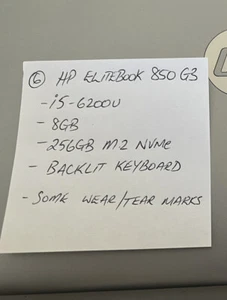 ⑥ HP ELITEBOOK 850 G3
- i5-6200U
- 8GB
- 256GB M2 NVMe
- BACKLIT KEYBOARD
- SOME WEAR/TEAR MARKS